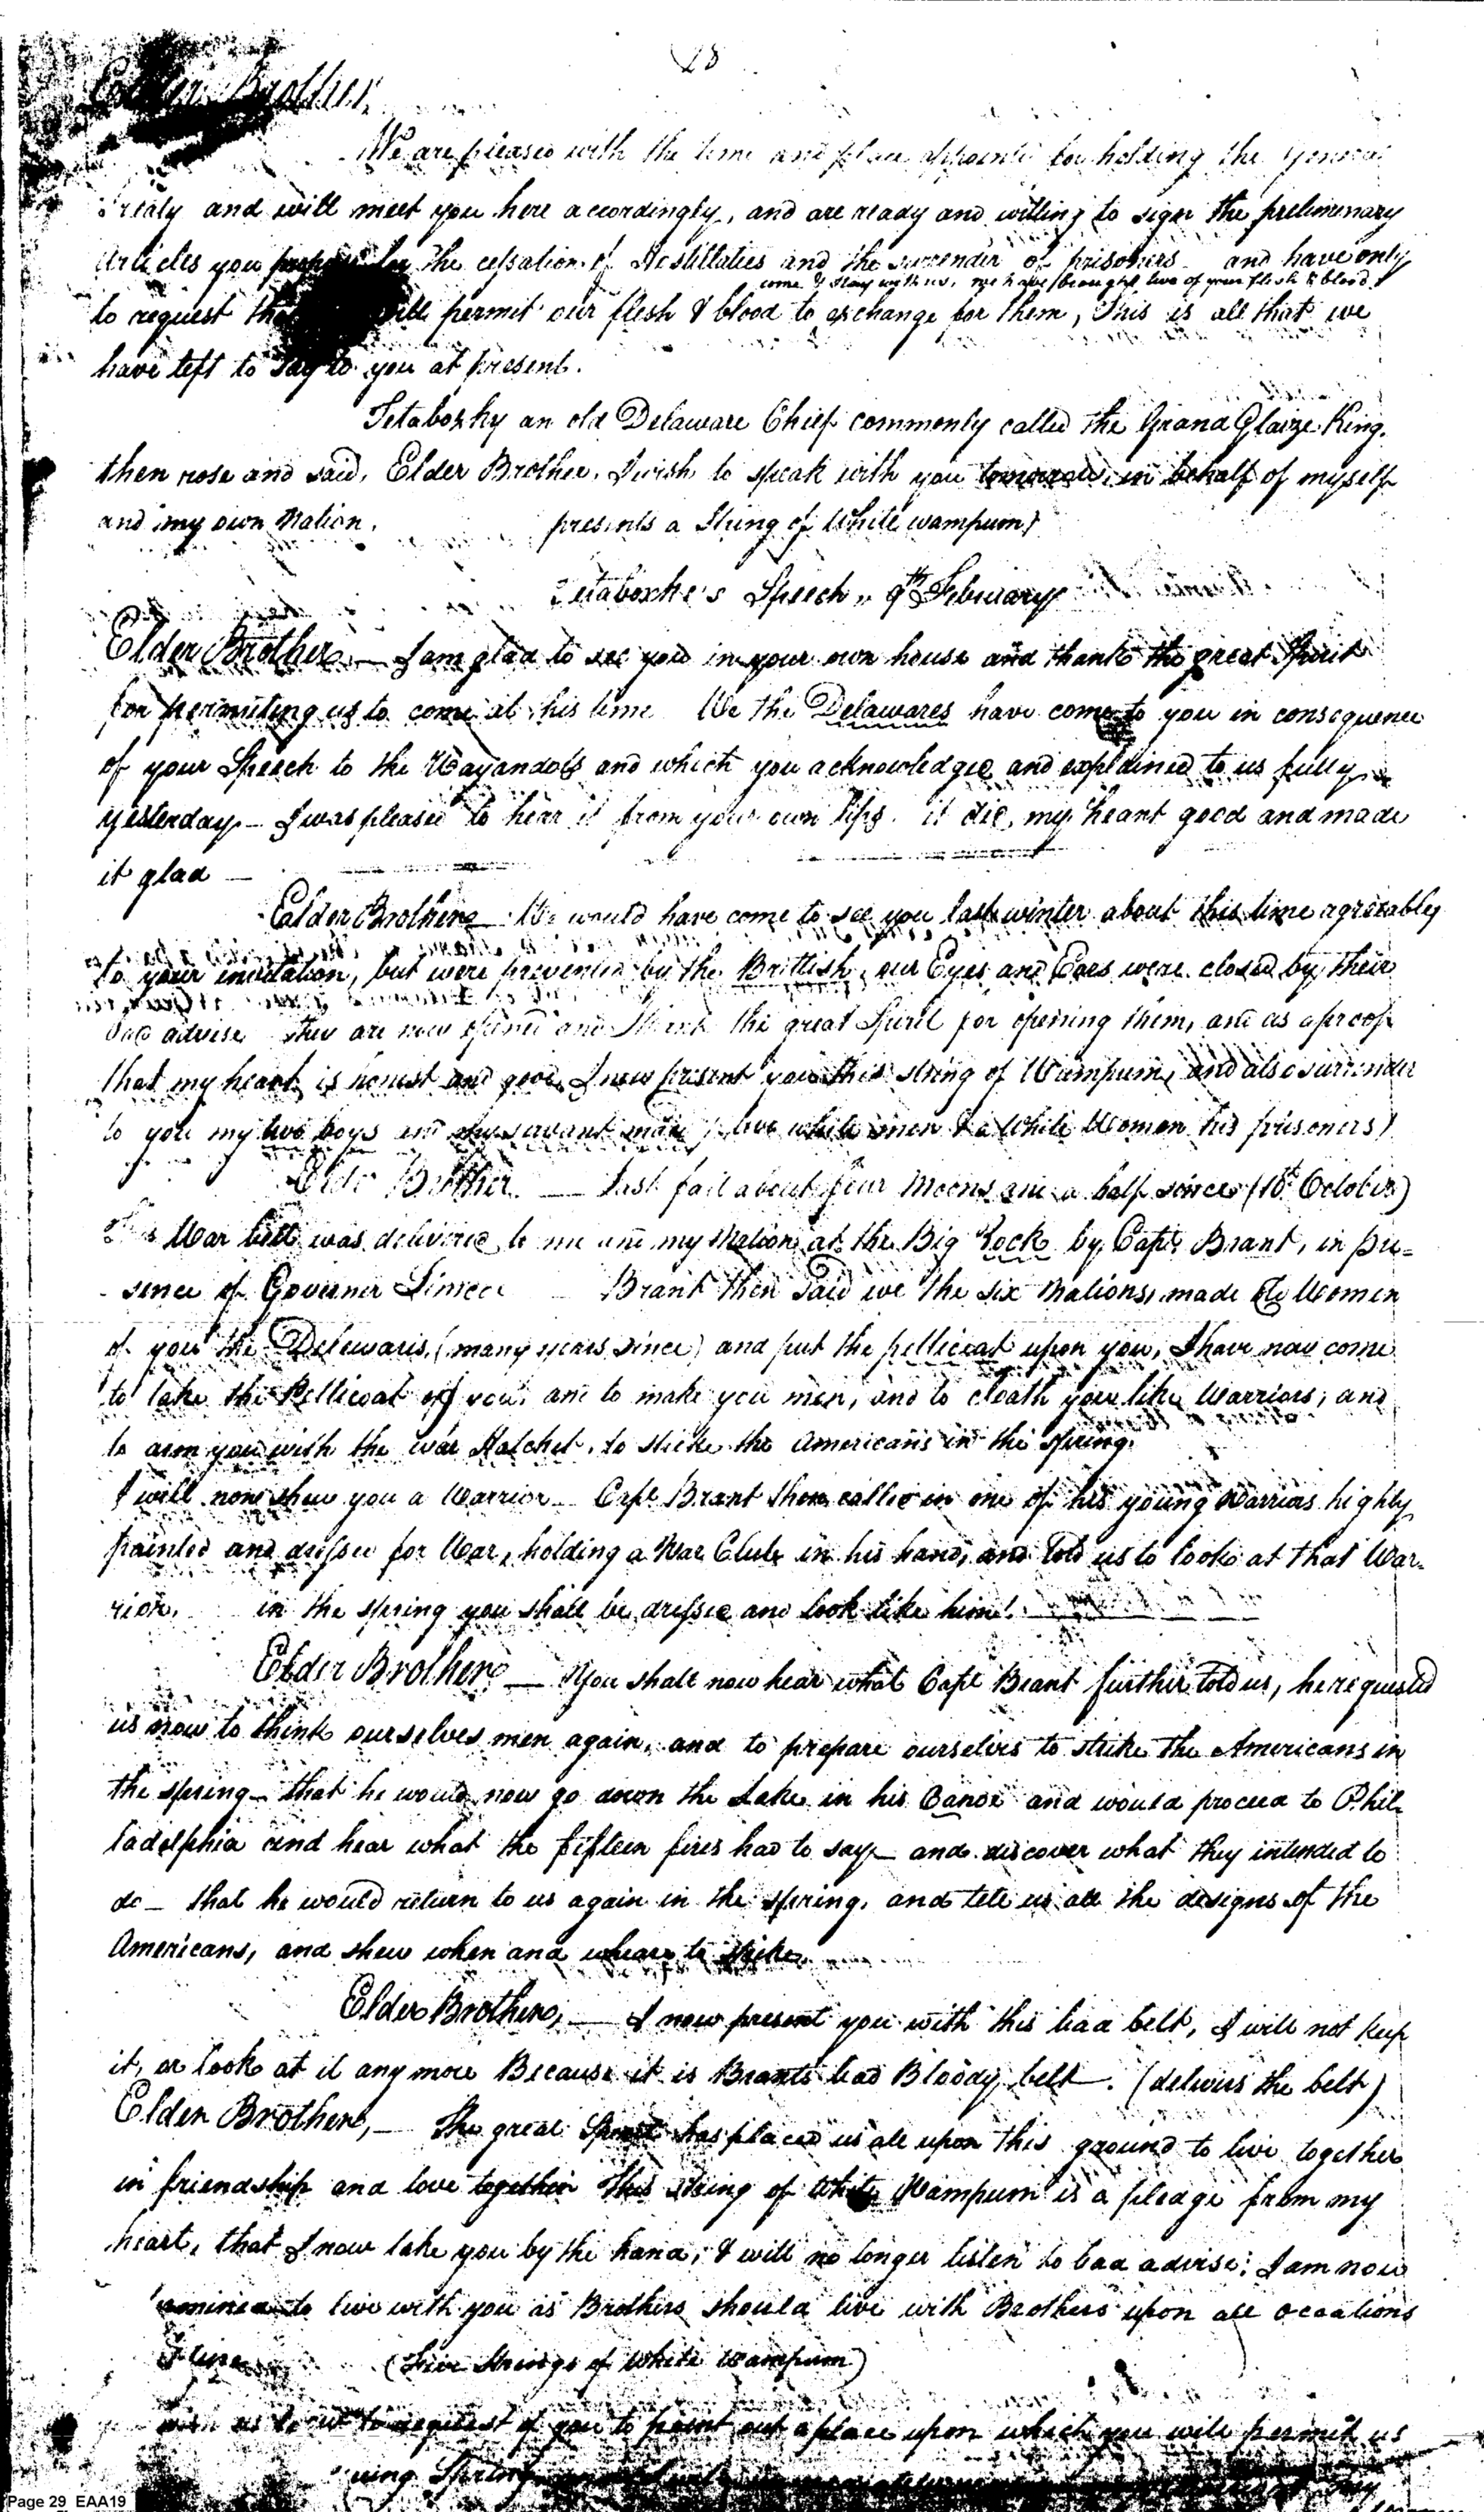 28
Elder Brother,
We are pleased with the time and place appointed for holding the General
Treaty and will meet you here accordingly, and are ready and willing to sign the prelimenary
Articles you for the cessation of Hostillaties and the surrender of prisoners and have only
come & stay with us, we have brought two of your flesh & blood
to request permit our flesh & blood to exchange for them, This is all that we
have left to say to you at present.
Tetaboxhy an old Delaware Chief commonly called the Grand Glaize King.
then rose and said, Elder Brother, I wish to speak with you tomorrow, in behalf of myself
and my own Nation. presents a String of White wampum)
Tetaboxhe's Speech, 9th February
Elder Brother, — I am glad to see you in your own house and thank the great Spirit
for permiting us to come at this time We the Delawares have come to you in consequence
of your Speech to the Wayandots and which you acknowledged and explained to us fully
yesterday — I was pleased to hear it from your own lips. it did my heart good and made
it glad —
Ealder Brother — We would have come to see you last winter about this time agreeabley
to your invitation, but were prevented by the Brittish, our Eyes and Ears were closed by their
bad advise they are now opened and I thank the great Spirit for opening them, and as a proof
that my heart is honest and good, I now present you this string of Wampum, and also surrender
to you my two boys and my servant maid (two white men & a White Women his prisoners)
Elder Brother — Last fall about four Moons and a half since (10th October)
This War belt was delivered to me and my Nation at the Big Rock by Capt Brant, in pre=
sence of Governer Simcoe Brant then said we the six Nations, made Women
of you the Delewaris, (many years since) and put the petticoat upon you, I have now come
to take the Petticoat of you, and to make you men, and to cloath you like Warriors, and
to arm you with the war Hatchet, to stricke the Americans in the spring.
I will now shew you a Warrior — Capt Brant then called in one of his young Warriors highly
painted and dressed for War, holding a War Club in his hand, and told us to look at that War-
rior, in the spring you shall be dressed and look like him!
Elder Brother — You shall now hear what Capt Brant further told us, he requested
us now to think ourselves men again, and to prepare ourselves to strike the Americans in
the spring — that he would now go down the Lake in his Canoe and would proceed to Phil-
ladelphia and hear what the fifteen fires had to say — and discover what they intended to
do — that he would return to us again in the spring, and tell us all the designs of the
Americans, and shew when and wheare to strike.
Elder Brother, — I now present you with this bad belt, I will not keep
it, or look at it any more Because it is Brants bad Bloody belt. (delivers the belt)
Elder Brother, — The great Spirit has placed us all upon this ground to live together
in friendship and love together This string of White Wampum is a pledge from my
heart, that I now take you by the hand, & will no longer listen to bad advise; I am now
to live with you as Brothers should live with Brothers upon all occations
(Five Strings of white wampum)
request of you to point out a place upon which you will permit us
Spring
Page 29 EAA19